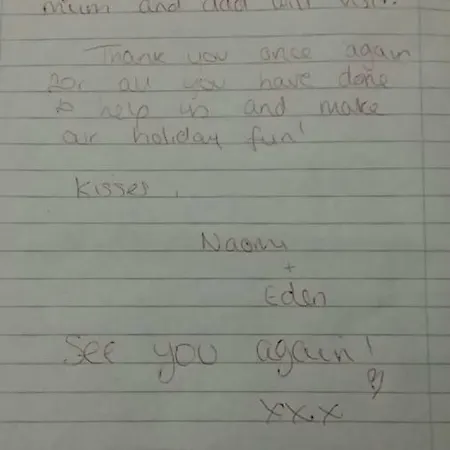 mum and dad will visit.
Thank you once again
for all you have done
to help us and make
our holiday fun!
Kisses,
Naomi
+
Eden
See you again!
xxx